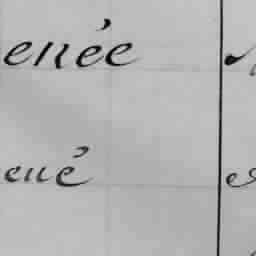 enée
eué